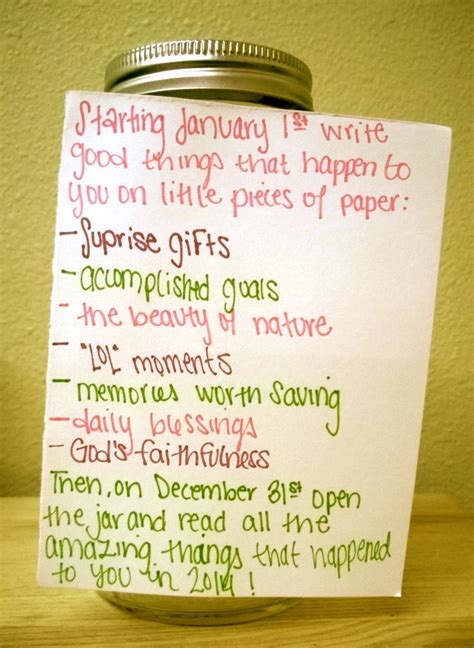 Starting January 1st write
good things that happen to
you on little pieces of paper:
- Suprise gifts
- accomplished goals
- the beauty of nature
- "LOL" moments
- memories worth saving
- daily blessings
- God's faithfulness
Then, on December 31st open
the jar and read all the
amazing things that happened
to you in 2014!